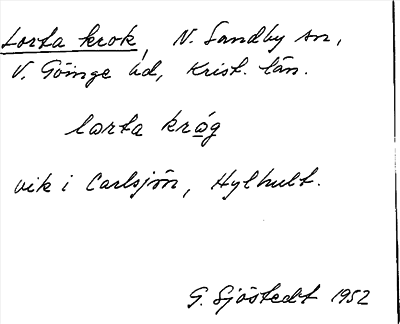 Lorta krok, N. Sandby sn,
V. Göinge hd, Krist. län.
lorta krọg
vik i Carlsjön, Hylhult.
G. Sjöstedt 1952